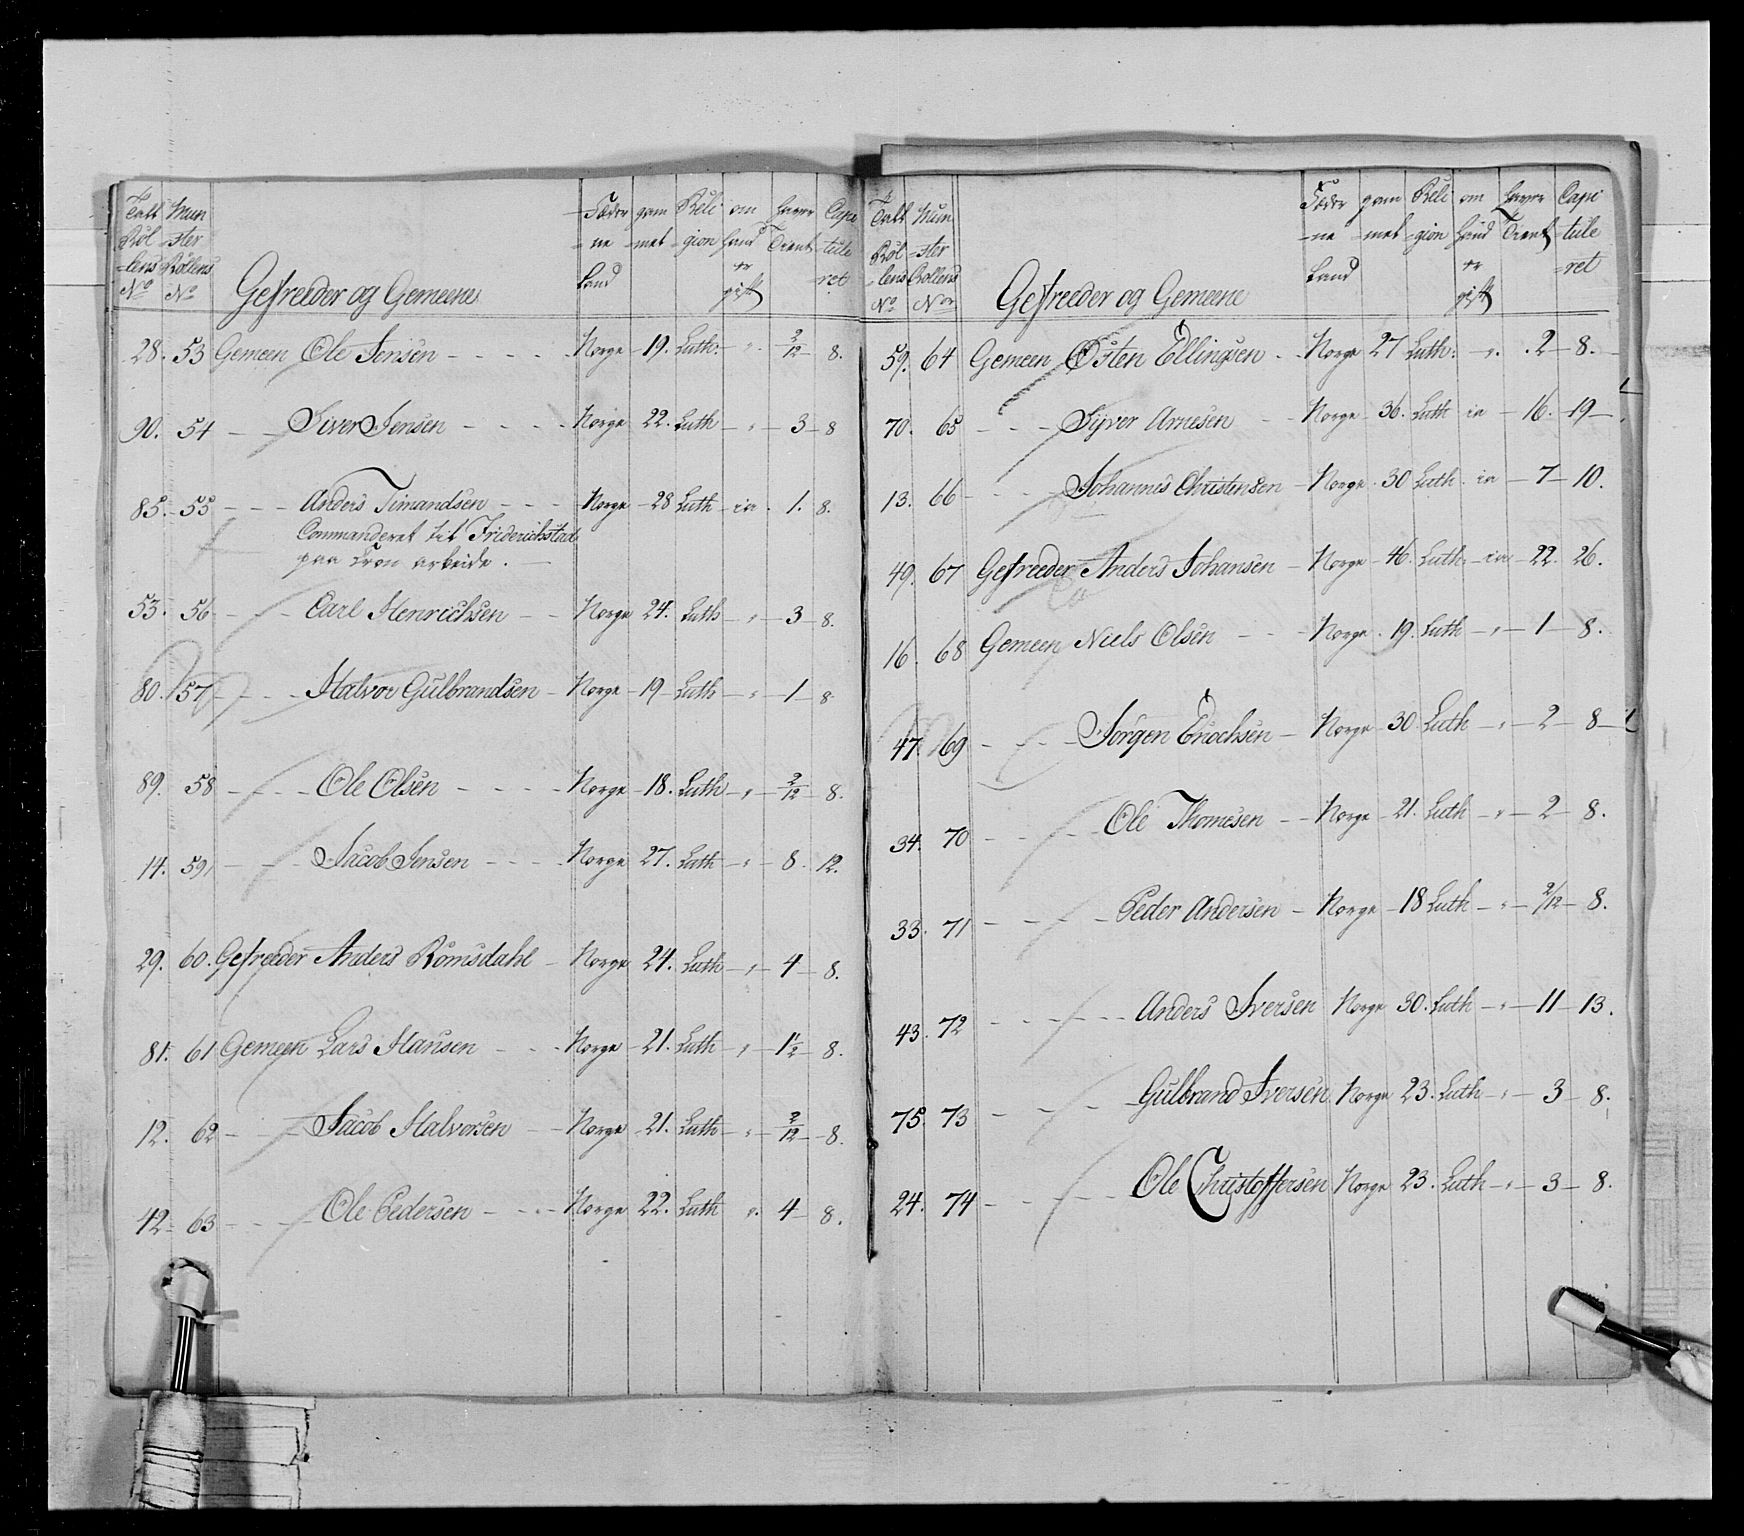 Tall Mun Fæder gam Reli om haver Capi
Rol -ster -ne -met -gion hand Tient -tule
-lens Rollens Land er -ret
No No Gefreeder og Gemeene gift
28. 53 Gemeen Ole Jensen - - - - Norge 19. Luth: - " - 2/12 8.
90. 54 - - Siver Jensen - - - - Norge 22. Luth - " - 3 - 8
85. 55 - - - Anders Timandsen - - - Norge - 28 Luth - ia . 1. 8.
Commanderet til Friderichstad
paa Cron arbeide.
53. 56 - - - Carl Henrichsen - - Norge 24. Luth - " - 3 - 8.
80. 57 - - - Halvor Gulbrandsen - Norge - 19 - Luth - " - 1 - 8
89. 58 - - - Ole Olsen - - - - Norge - 18. Luth - " - 2/12 - 8.
14. 59 - - - Jacob Jensen - - - - Norge 27. Luth - " - 8. 12.
29. 60. Gefreeder Anders Romsdahl - Norge 24. Luth - " - 4 - 8.
81. 61 Gemeen Lars Hansen - - - Norge - 21. Luth - " - 1½ - 8.
12. 62 - - - Jacob Halvorsen - - Norge 21. Luth - " - 2/12 - 8.
42. 63 - - - Ole Pedersen - - - Norge 22. Luth ". 4 - 8.
Tall Mun Fæder gam Reli om haver Capi
Rol -ster -ne -met -gion hand Tient -tule
-lens Rollens Land er -ret
No No Gefreeder og Gemeene gift
59. 64 Gemeen Østen Ellingsen - - Norge 27 Luth: - " . 2 - 8.
70. 65 - - - Syver Arnesen - - Norge - 36. Luth ia - 16. - 19 -
13. 66 - - - Johannes Christensen - Norge . 30 Luth . ia - 7 - 10.
49. 67 Gefreeder Anders Johansen - Norge - 46. Luth. - ia - 22. 26.
16. 68 Gemeen Niels Olsen - - - Norge . 19. Luth - " - 1 - 8.
47. 69 - - - Jørgen Enochsen - Norge 30 Luth - " - 2 - 8 -
34. 70 - - - Ole Thomesen - - Norge - 21. Luth - " - 2 - 8.
33. 71 - - - Peder Andersen - Norge - 18 Luth - " - 2/12 - 8.
43. 72 - - - Anders Iversen Norge 30. Luth - " - 11 - 13.
75. 73 - - - Gulbrand Iversen Norge 23. Luth - " - 3 - 8.
24. 74 - - - Ole Christoffersen Norge 23. Luth - " - 3 - 8.